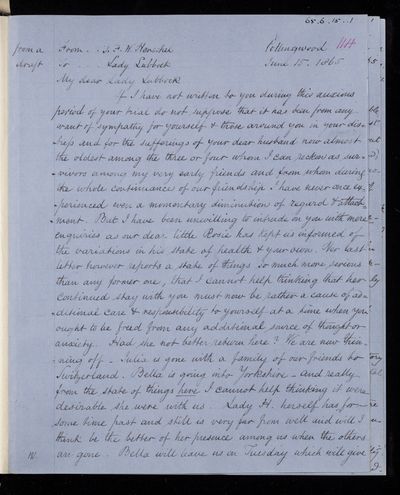 65.6.15..1
from a From .. J. F. W. Herschel Collingwood 1114
draft To ... Lady Lubbock June 15. 1865
My dear Lady Lubbock
If I have not written to you during this anxious
period of your trial do not suppose that it has been from any
want of sympathy for yourself & those around you in your dis-
tress and for the sufferings of your dear husband now almost
the oldest among the three or four whom I can reckon as sur-
vivors among my very early friends and from whom during
the whole continuance of our friendship I have never once ex-
perienced even a momentary diminution of regard & attach-
ment. But I have been unwilling to intrude on you with mere
enquiries as our dear little Rosie has kept us informed of
the variations in his state of health & your own. Her last
letter however reports a state of things so much more serious
than any former one, that I cannot help thinking that her
continued stay with you must now be rather a cause of ad-
ditional care & responsibility to yourself at a time when you
ought to be freed from any additional source of thought or
anxiety. Had she not better return here? We are now thin-
ning off - Julia is gone with a family of our friends to
Switzerland. Bella is going into Yorkshire - and really
from the state of things here I cannot help thinking it were
desirable she were with us. Lady H. herself has for
some time past and still is very far from well and will I
think be the better of her presence among us when the others
are gone. Bella will leave us on Tuesday which will give